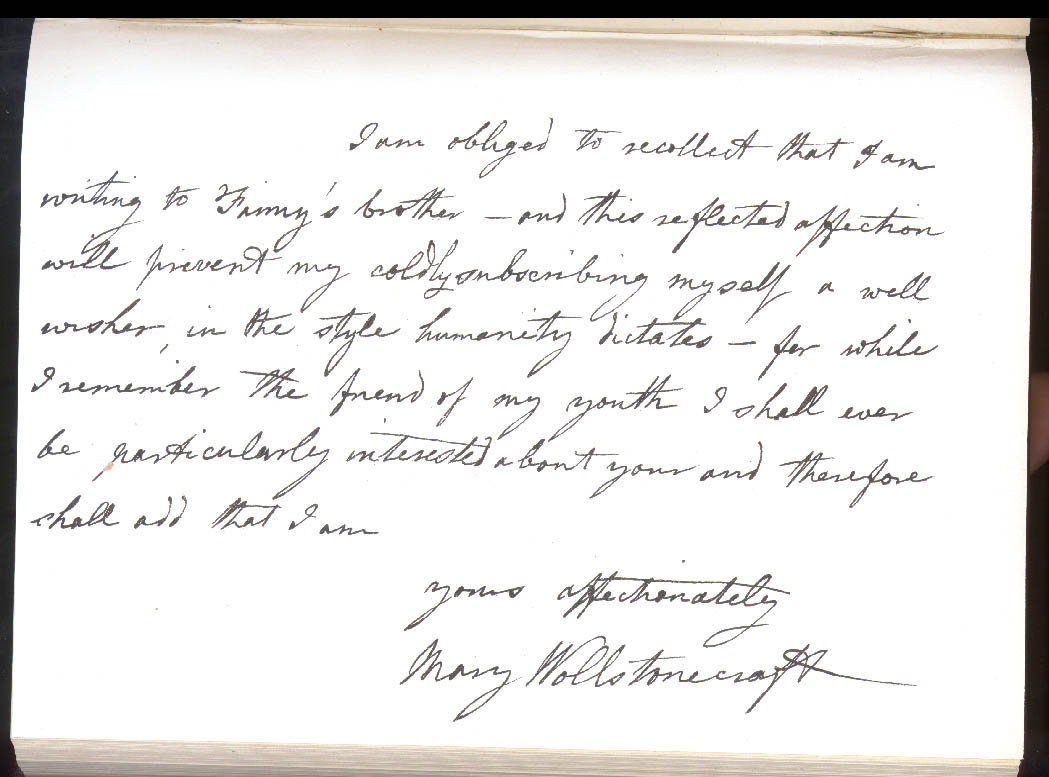 I am obliged to recollect that I am
writing to Fanny's brother – and this reflected affection
will prevent my coldly subscribing myself a well
wisher, in the style humanity dictates – for while
I remember the friend of my youth I shall ever
be particularly interested about your and therefore
shall add that I am
yours affectionately
Mary Wollstonecraft